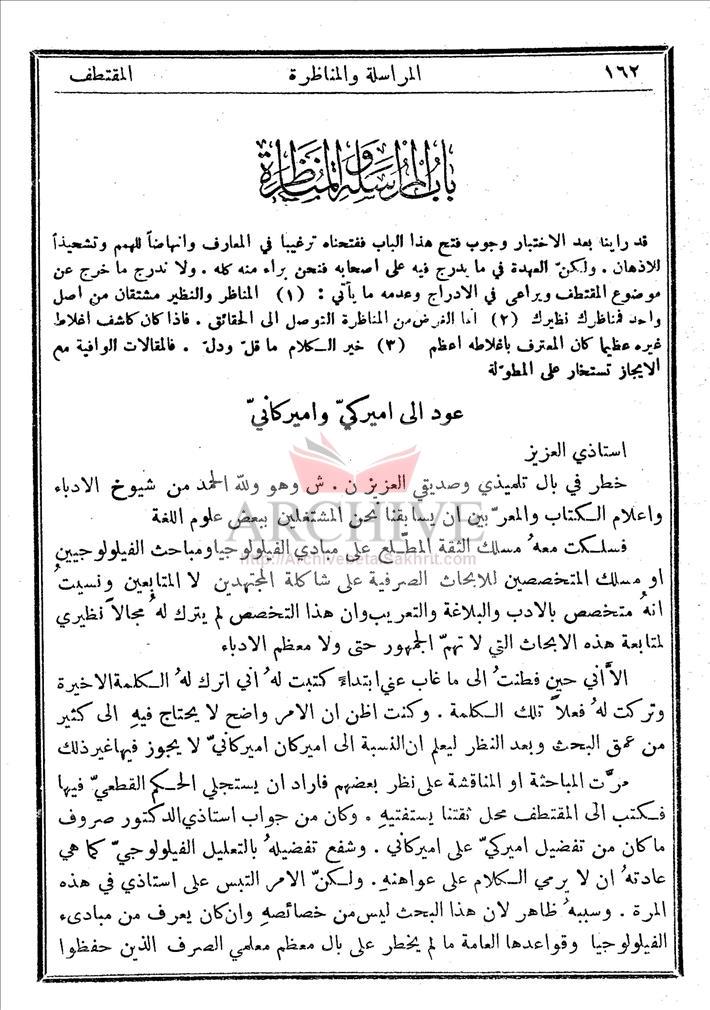 ١٦٢ المراسلة والمناظرة المقتطف
باب المراسلة والمناظرة
قد راينا بعد الاختبار وجوب فتح هذا الباب ففتحناه ترغيبا في المعارف وانهاضاً للهمم وتشحيذاً
للاذهان . ولكنّ العهدة في ما يدرج فيه على اصحابه فنحن براء منه كله . ولا ندرج ما خرج عن
موضوع المقتطف ويراعى في الادراج وعدمه ما يأتي : (١) المناظر والنظير مشتقان من أصل
واحد فمناظرك نظيرك (٢) انما الغرض من المناظرة التوصل الى الحقائق . فاذا كان كاشف اغلاط
غيره عظيما كان المعترف باغلاطه اعظم (٣) خير الكلام ما قلّ ودلّ . فالمقالات الوافية مع
الايجاز تستخار على المطوّلة
عود الى اميركيّ واميركانيّ
استاذي العزيز
خطر في بال تلميذي وصديقي العزيز ن . ش وهو ولله الحمد من شيوخ الادباء
واعلام الكتاب والمعرّبين ان يسابقنا نحن المشتغلين ببعض علوم اللغة
فسلكت معهُ مسلك الثقة المطّلع على مبادي الفيلولوجيا ومباحث الفيلولوجيين
او مسلك المتخصصين للابحاث الصرفية على شاكلة المجتهدين لا المتابعين ونسيتُ
انهُ متخصص بالادب والبلاغة والتعريب وان هذا التخصص لم يترك لهُ مجالاً نظيري
لمتابعة هذه الابحاث التي لا تهمّ الجمهور حتى ولا معظم الادباء
الاَّ أني حين فطنتُ الى ما غاب عني ابتداءً كتبت لهُ اني اترك لهُ الكلمة الاخيرة
وتركت لهُ فعلاً تلك الكلمة . وكنت اظن ان الامر واضح لا يحتاج فيهِ الى كثير
من عمق البحث وبعد النظر ليعلم ان النسبة الى اميركان اميركانيّ لا يجوز فيها غير ذلك
مرَّت المباحثة او المناقشة على نظر بعضهم فاراد ان يستجلي الحكم القطعيّ فيها
فكتب الى المقتطف محل ثقتنا يستفتيهِ . وكان من جواب استاذي الدكتور صروف
ما كان من تفضيل اميركيّ على اميركاني . وشفع تفضيلهُ بالتعليل الفيلولوجيّ كما هي
عادتهُ ان لا يرمي الكلام على عواهنهِ . ولكنّ الامر التبس على استاذي في هذه
المرة . وسببهُ ظاهر لان هذا البحث ليس من خصائصهِ وان كان يعرف من مبادىء
الفيلولوجيا وقواعدها العامة ما لم يخطر على بال معظم معلمي الصرف الذين حفظوا
ARCHIVE
http://Archivebeta.Sakhrit.com